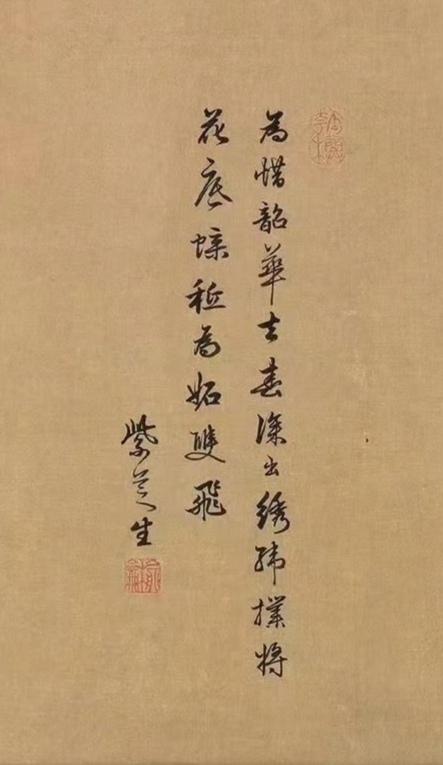 為惜韶華去春深出綉幃撲將
花底蝶秪為妬雙飛
紫芝生